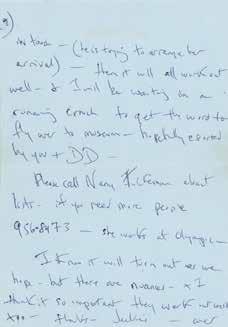 9)
in town – (he is trying to arrange her
arrival) – then it will all work out
well – & I will be waiting in a
running crouch to get the word to
fly over to museum – hopefully escorted
by you + DD –
Please call Nancy about
lists – if you need more people
956-8473 – she works at Olympic –
I know it will turn out as we
hope – but there are nuances – & I
think it so important they work out well
xxo – Thanks – Jackie – over